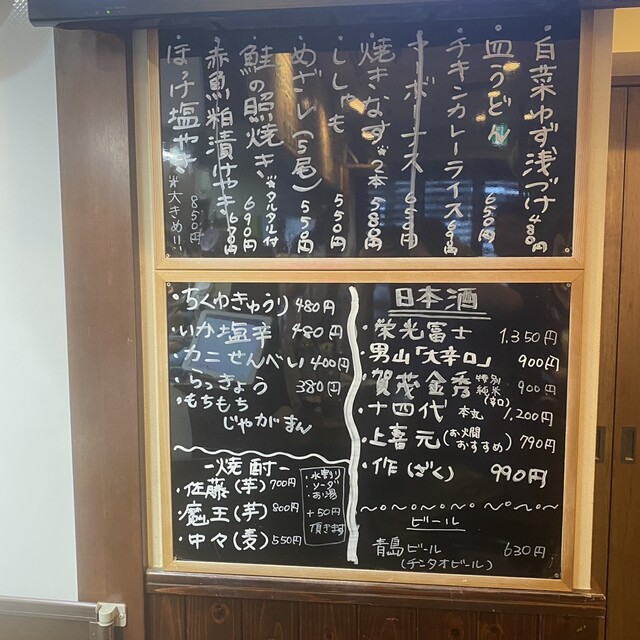 ・白菜ゆず浅づけ 480円
・皿うどん 650円
・チキンカレーライス 690円
・サボナース 650円
・焼きなす*2本 580円
・ししゃも 550円
・めざし(5尾) 550円
・鮭の照焼き*タルタル付 690円
・赤魚粕漬けやき 670円
・ほっけ塩やき*大きめ!! 850円
・ちくわきゅうり 480円
・いか塩辛 480円
・カニせんべい 400円
・らっきょう 380円
・もちもち
じゃがまん
-焼酎-
・佐藤(芋) 700円
・魔王(芋) 800円
・中々(麦) 550円
・水割り
・ソーダ
・お湯
+50円
頂きます
日本酒
・栄光冨士 1,350円
・男山「大辛口」 900円
・賀茂金秀 特別純米(辛口) 900円
・十四代 本丸 1,200円
・上喜元(お燗おすすめ) 790円
・作(ざく) 990円
ビール
青島ビール 630円
(チンタオビール)